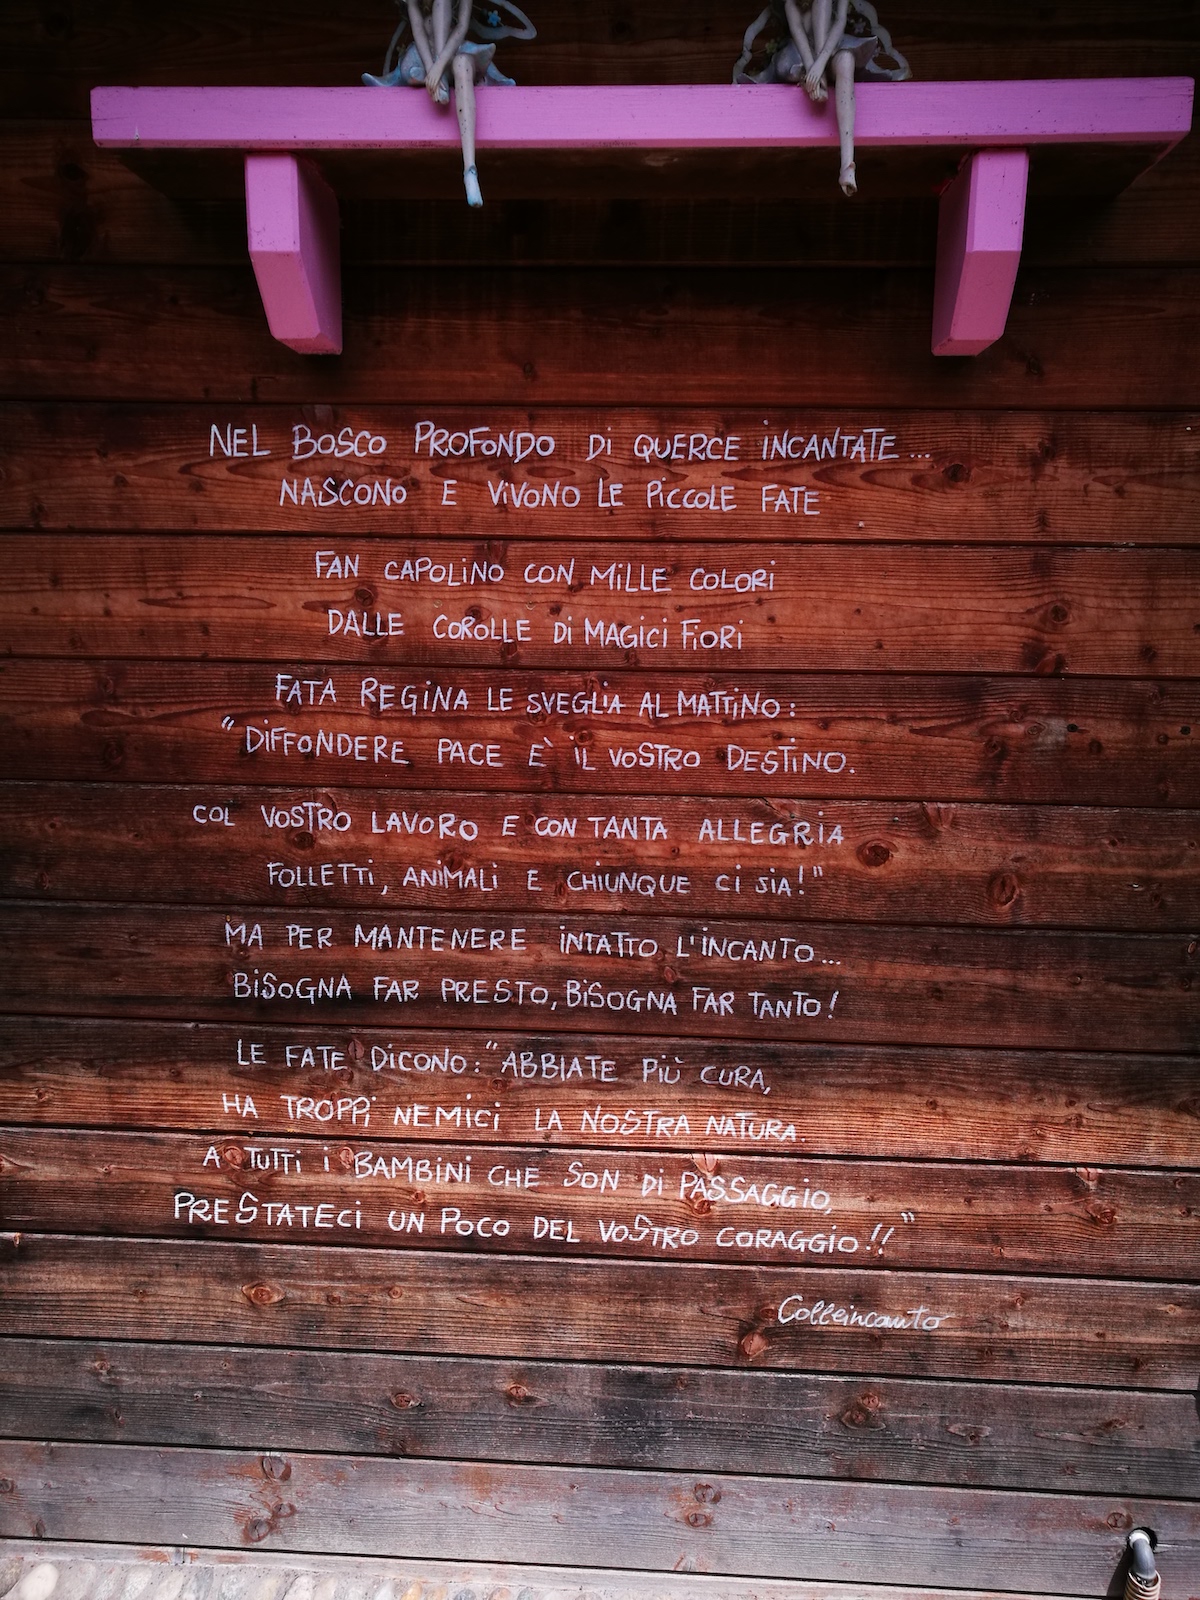 NEL BOSCO PROFONDO Di QUERCE iNCANTATE...
NASCONO E ViVONO LE PiCCOLE FATE
FAN CAPOLiNO CON MiLLE COLORi
DALLE COROLLE Di MAGiCi FiORi
FATA REGiNA LE SVEGLiA AL MATTiNO:
"DiFFONDERE PACE E` iL VOSTRO DESTiNO.
COL VOSTRO LAVORO E CON TANTA ALLEGRiA
FOLLETTi, ANiMALi E CHiUNQUE Ci SiA!"
MA PER MANTENERE iNTATTO L'iNCANTO...
BiSOGNA FAR PRESTO, BiSOGNA FAR TANTO!
LE FATE DiCONO: "ABBIATE PiÙ CURA,
HA TROPPi NEMiCi LA NOSTRA NATURA.
A TUTTi i BAMBiNi CHE SON Di PASSAGGiO,
PRESTATECi UN POCO DEL VOSTRO CORAGGiO!!"
Colleincanto